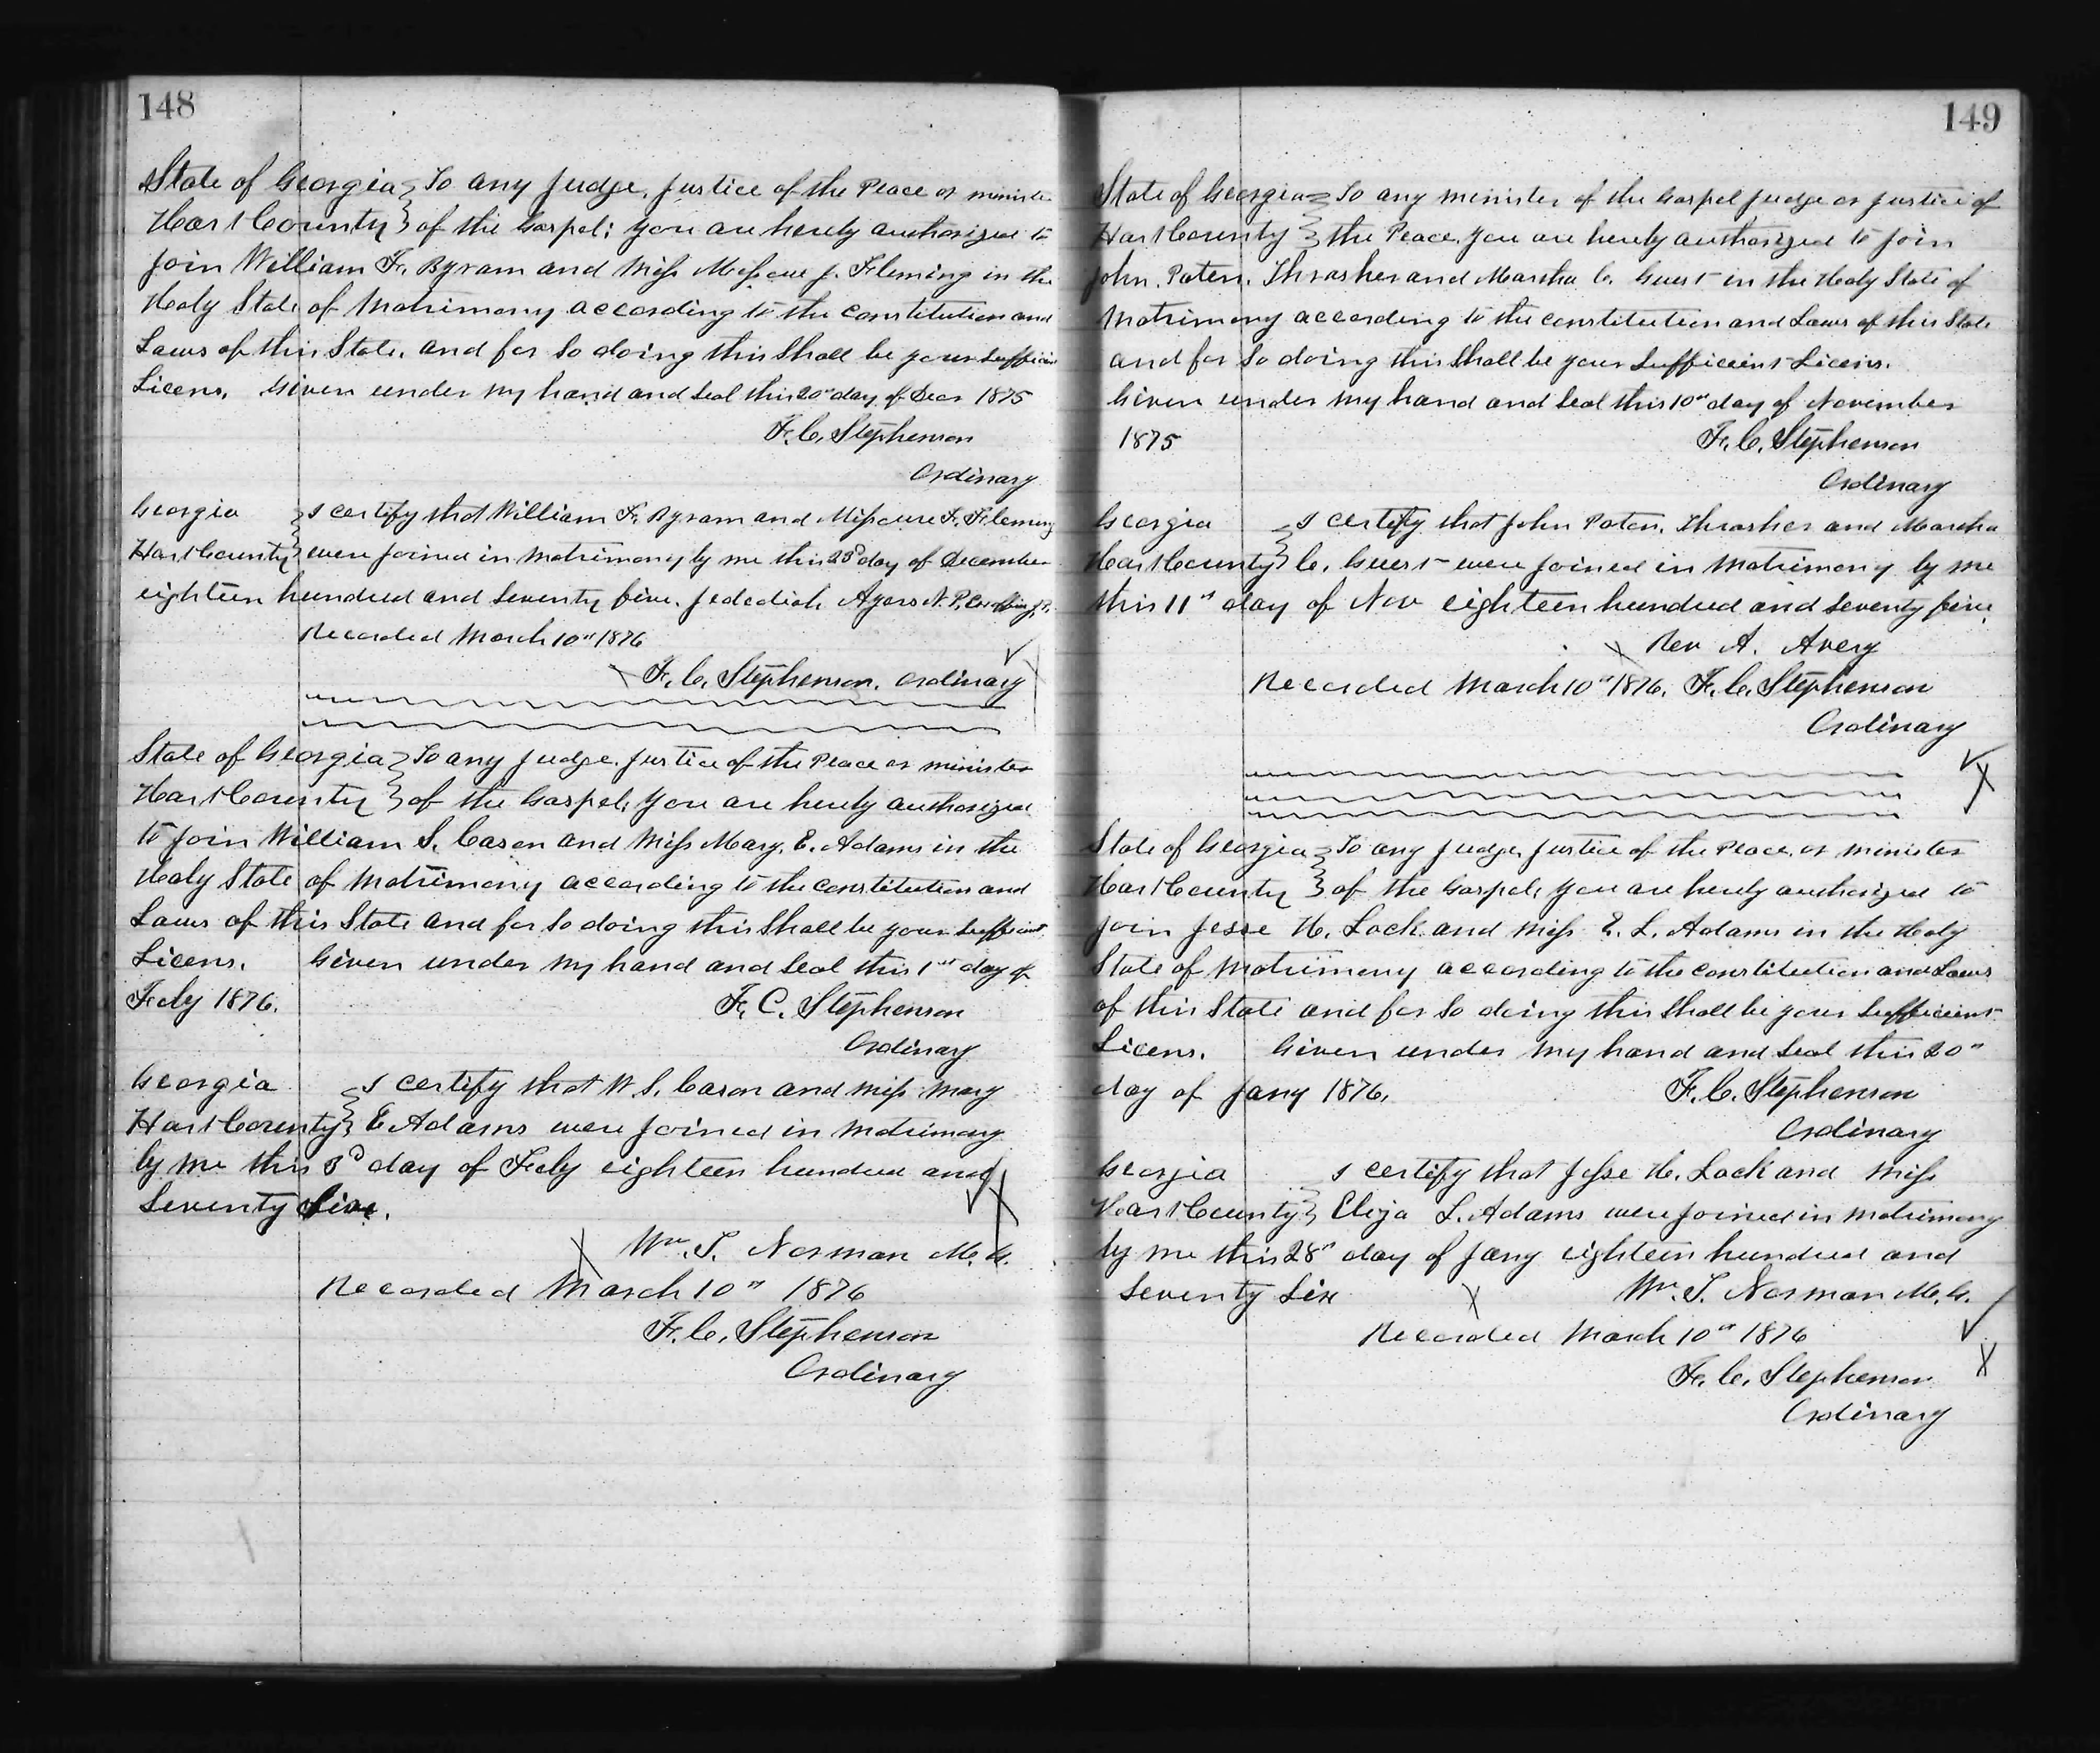 148
State of Georgia To any Judge, Justice of the Peace or minister
Hart County of the Gospel; you are hereby authorized to
join William F. Byram and Miss Missoue J. Fleming in the
Holy State of Matrimony according to the constitution and
Laws of this State. and for So doing this Shall be your Sufficient
Licens. Given under my hand and Seal this 20" day of Decr 1875
F. C. Stephenson
Ordinary
Georgia I certify that William F. Byram and Missoure F. Fleming
Hart County were joined in matrimony by me this 23d day of December
eighteen hundred and Seventy five. Jedediah Ayers N. P.
Recorded March 10" 1876
F. C. Stephenson. Ordinary
State of Georgia To any Judge. Justice of the Peace or minister
Hart County of the Gospel, you are hereby authorized
to join William S. Cason and Miss Mary. E. Adams in the
Holy State of Matrimony according to the constitution and
Laws of this State and for So doing this Shall be your Sufficient
Licens. Given under my hand and Seal this 1st day of
Feby 1876.
F. C. Stephenson
Ordinary
Georgia I certify that W. S. Cason and miss Mary
Hart County E Adams were joined in matrimony
by me this 3d day of Feby eighteen hundred and
Seventy
Wm. T. Norman M. G.
Recorded March 10" 1876
F. C. Stephenson
Ordinary
149
State of Georgia To any minister of the Gospel Judge or Justice of
Hart County the Peace, you are hereby authorized to join
John. Paten. Thrasher and Martha C. Guest in the Holy State of
Matrimony according to the constitution and Laws of this State
and for So doing this Shall be your Sufficient Licens.
Given under my hand and Seal this 10" day of November
1875 F. C. Stephenson
Ordinary
Georgia I certify that John Paten. Thrasher and Martha
Hart County C. Guest were joined in matrimony by me
this 11" day of Nov eighteen hundred and Seventy five.
Rev A. Avery
Recorded March 10" 1876. F. C. Stephenson
Ordinary
State of Georgia To any Judge, Justice of the Peace, or minister
Hart County of the Gospel, you are hereby authorized to
join Jesse H. Lock and Miss E. L. Adams in the Holy
State of Matrimony according to the constitution and Laws
of this State and for So doing this Shall be your Sufficient
Licens. Given under my hand and Seal this 20"
day of Jany 1876. F. C. Stephenson
Ordinary
Georgia I certify that Jesse H. Lock and Miss
Hart County Eliza L. Adams were joined in matrimony
by me this 28" day of Jany eighteen hundred and
Seventy Six Wm. T. Norman M. G.
Recorded March 10" 1876
F. C. Stephenson
Ordinary